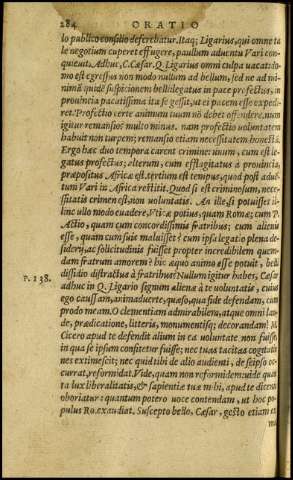 284 ORATIO
lo publico consilio deferebatur. Itaq; Ligarius, qui omne ta
le negotium cuperet effugere, paullum aduentu Vari con-
quieuit. Adhuc, C. Cæsar. Q. Ligarius omni culpa uacat: do-
mo est egressus non modo nullum ad bellum, sed ne ad mi-
nimā quidē suspicionem belli: legatus in pace profectus, in
prouincia pacatissima ita se gessit, ut ei pacem esse expedi-
ret. Profectio certe animum tuum nō debet offendere, num
igitur remansio? multo minus. nam profectio uoluntatem
habuit non turpem; remansio etiam necessitatem honestā.
Ergo hæc duo tempora carent crimine: unum, cum est le-
gatus profectus; alterum, cum efflagitatus à prouincia,
præpositus Africæ est. tertium est tempus, quod post aduē-
tum Vari in Africa restitit. Quod si est criminosum, neces-
sitatis crimen est, non uoluntatis. An ille, si potuisset il-
linc ullo modo euadere, Vticæ potius, quam Romæ; cum P.
Actio, quam cum concordissimis fratribus; cum alienis
esse, quam cum suis maluisset? cum ipsa legatio plena de-
siderij, ac solicitudinis fuisset propter incredibilem quen-
dam fratrum amorem? hic æquo animo esse potuit, belli
dissidio distractus à fratribus? Nullum igitur habes, Cæsar
P. 138. adhuc in Q. Ligario signum alienæ à te uoluntatis, cuius
ego caussam, animaduerte, quæso, qua fide defendam, cum
prodo meam. O clementiam admirabilem, atque omni lau-
de, prædicatione, litteris, monumentisq; decorandam! M.
Cicero apud te defendit alium in ea uoluntate non fuisse,
in qua se ipsum confitetur fuisse; nec tuas tacitas cogitatio
nes extimescit; nec quid tibi de alio audienti, de se ipso oc-
currat, reformidat. Vide, quam non reformidem: uide quan
ta lux liberalitatis, & sapientiæ tuæ mihi, apud te dicenti
oboriatur: quantum potero uoce contendam, ut hoc po-
pulus Ro. exaudiat. Suscepto bello, Cæsar, gesto etiam ex